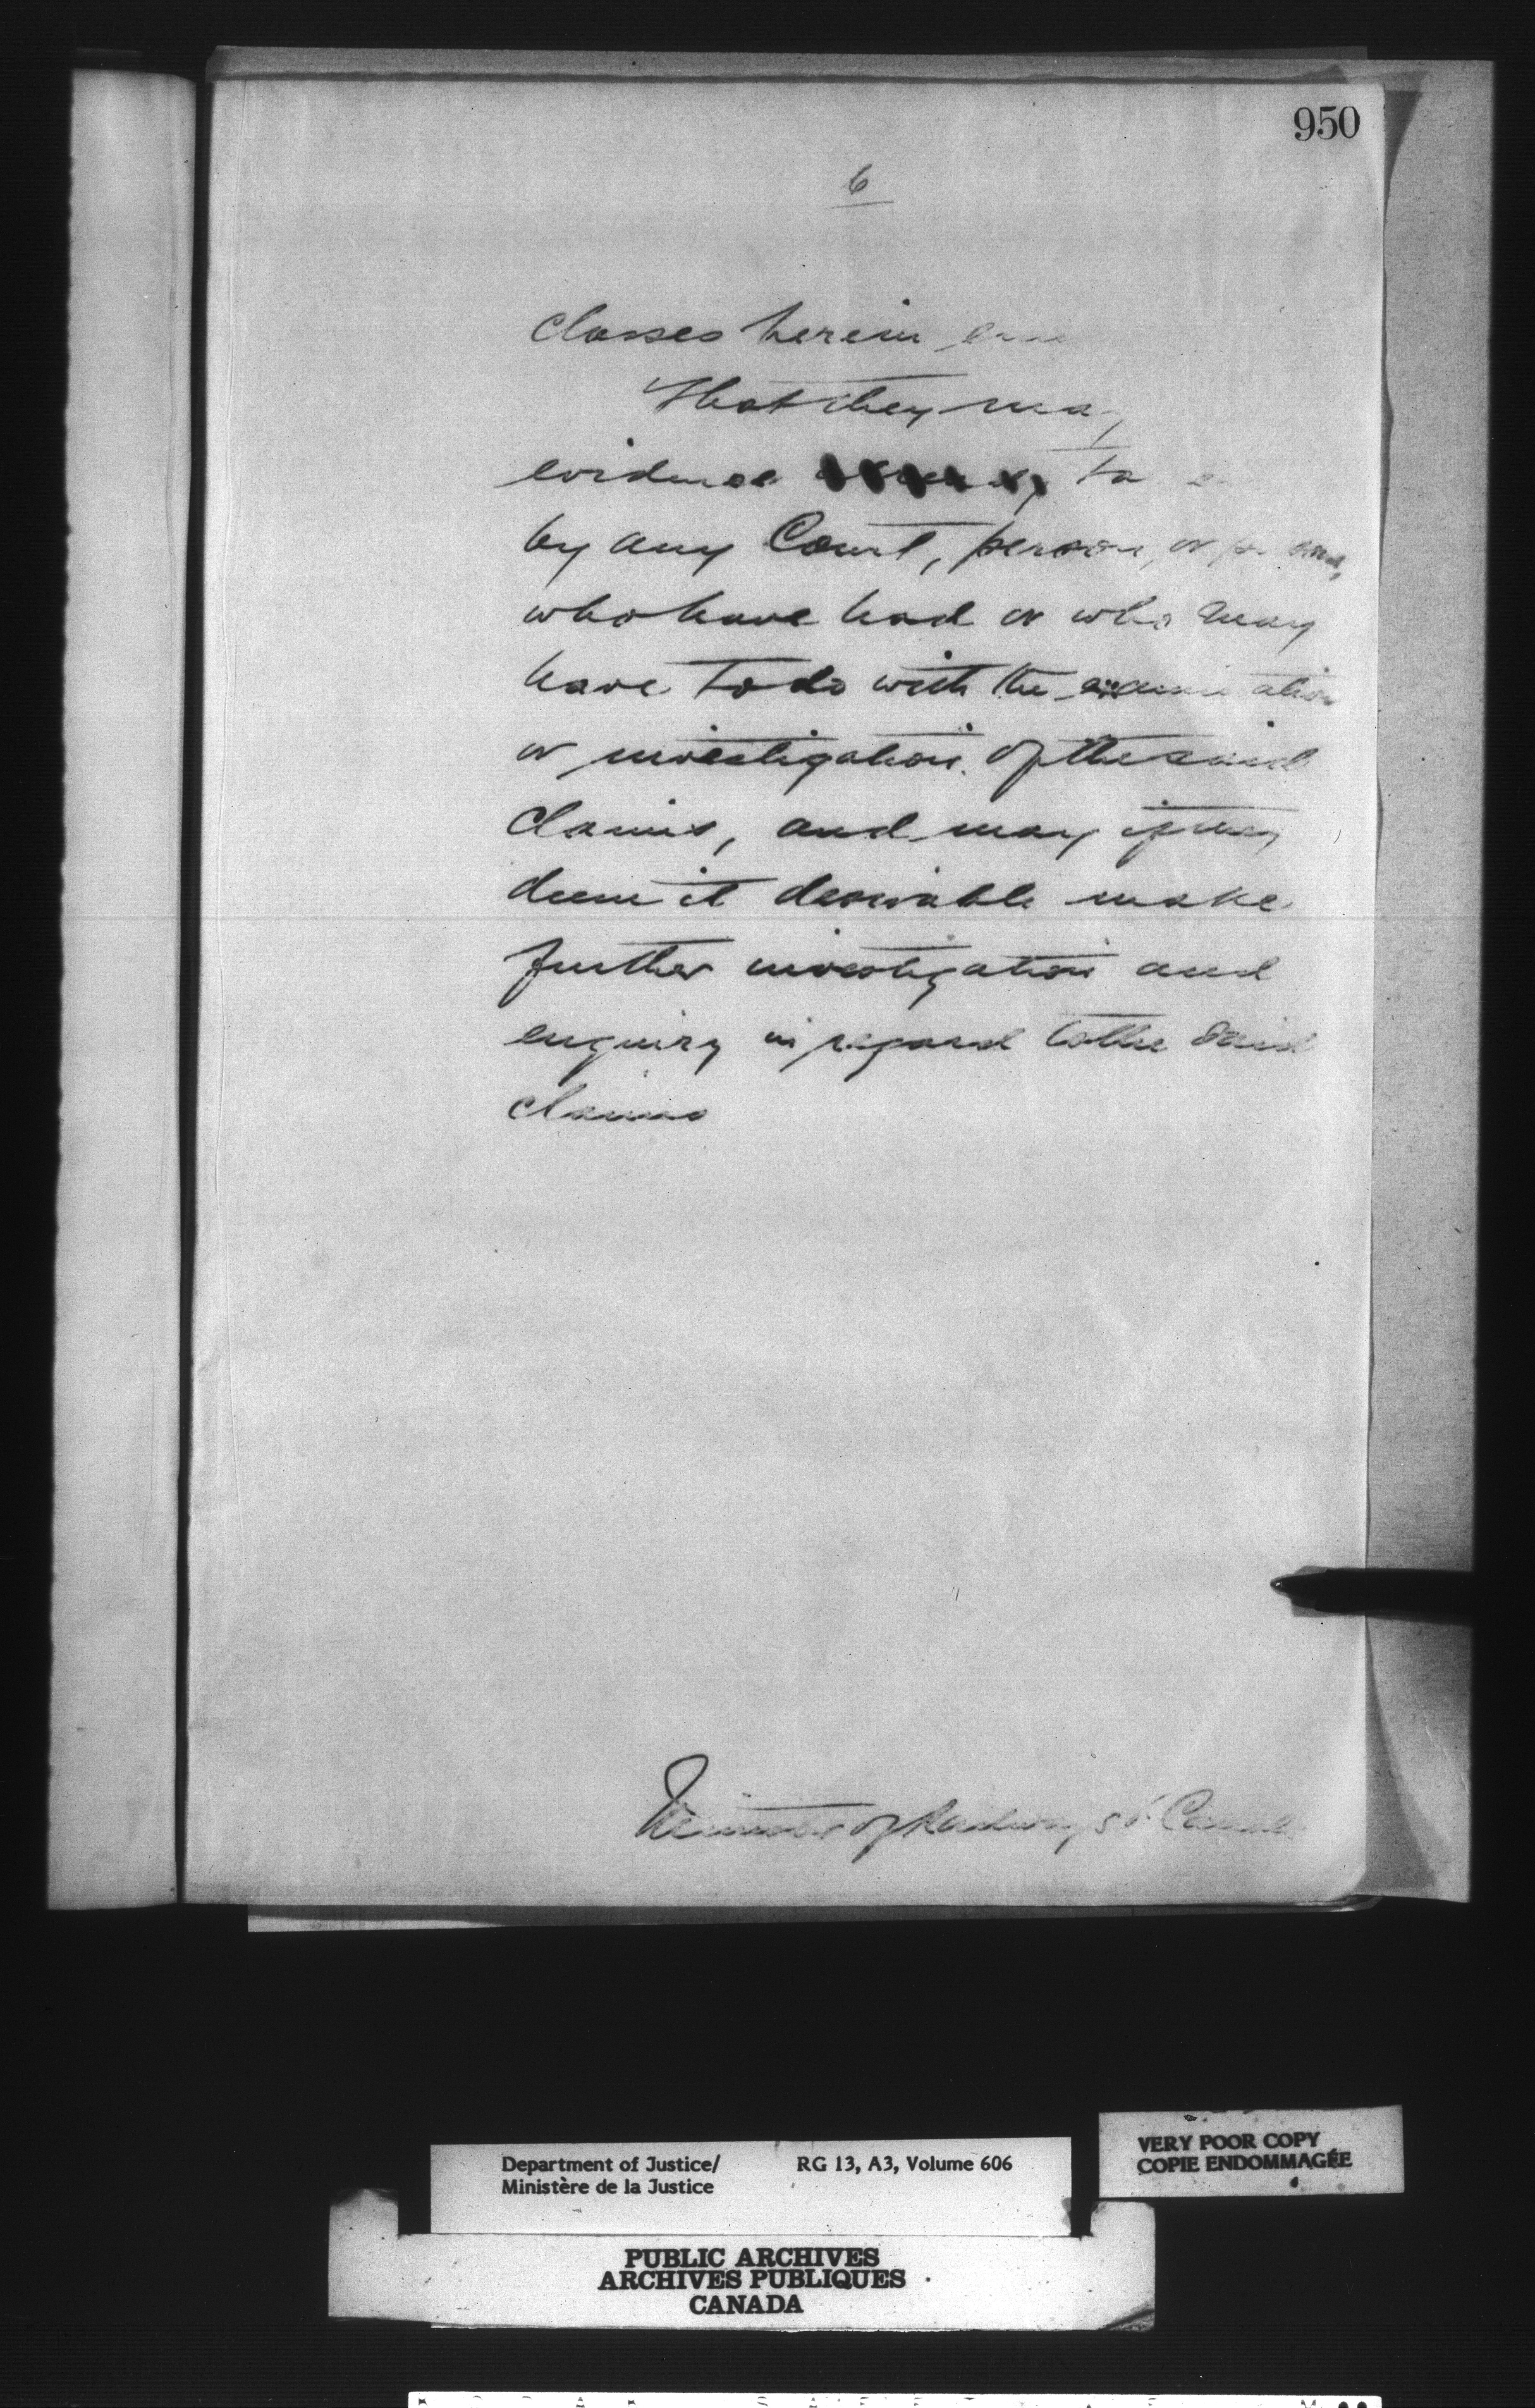 950
6
Classes herein
That they may
evidence to
by any Court, person, or
who have had or who may
have to do with the examination
or investigation of the said
Claims, and may if they
deem it desirable make
further investigation and
enquiry in regard to the said
claims
Minister of Railways & Canals
Department of Justice/ RG 13, A3, Volume 606
Ministère de la Justice
VERY POOR COPY
COPIE ENDOMMAGÉE
PUBLIC ARCHIVES
ARCHIVES PUBLIQUES
CANADA